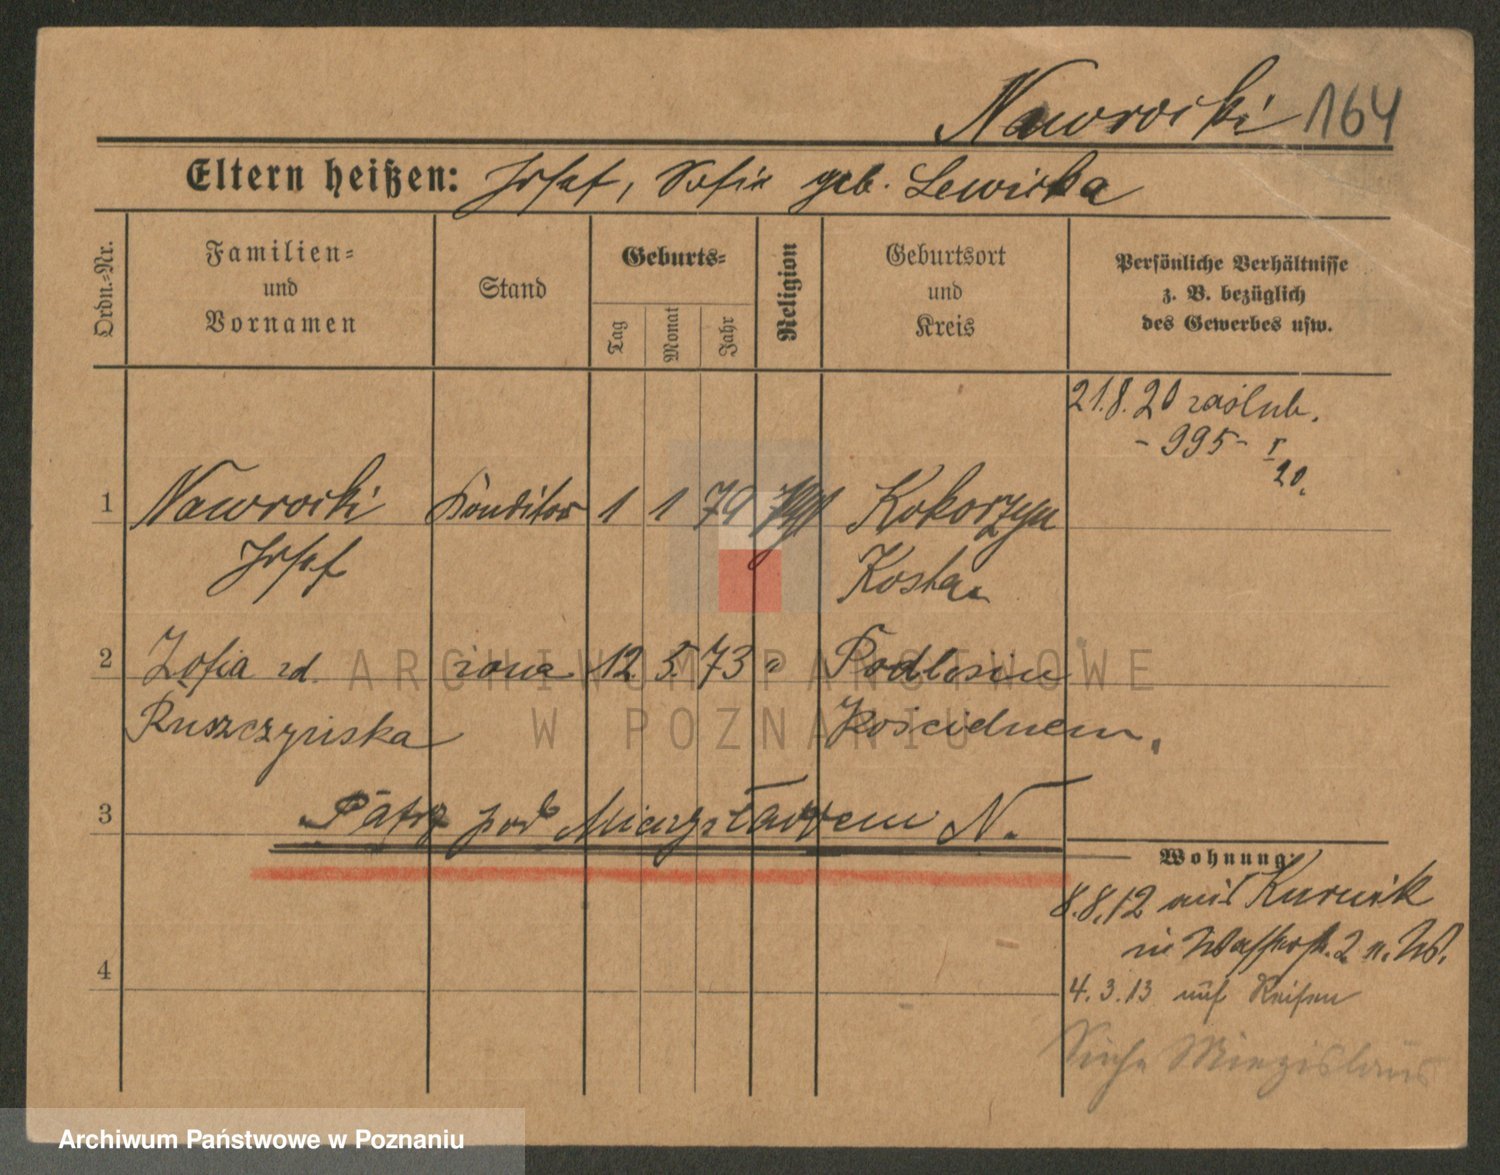 Nawrocki 164
Eltern heißen: Josef, Sofie geb. Lewicka
Ordn.-Nr.
Familien-
und
Vornamen
Stand
Geburts-
Tag
Monat
Jahr
Religion
Geburtsort
und
Kreis
Persönliche Verhältnisse
z. B. bezüglich
des Gewerbes usw.
21.8.20 zaślub.
- 995 - I
20.
1 Nawrocki Konditor 1 1 79 Kokorzyn
Josef Kosten
2 Zofia zd. żona 12. 5. 73 " Podlesin
Ruszczyńska Kościelnem,
3 Patrz pod Mieczysławem N.
Wohnung:
8.8.12 aus Kurnik
in Wasserstr. 2 n. W.
4
4.3.13 auf Reisen
Siehe Miezislaus
ARCHIWUM PAŃSTWOWE
W POZNANIU
Archiwum Państwowe w Poznaniu